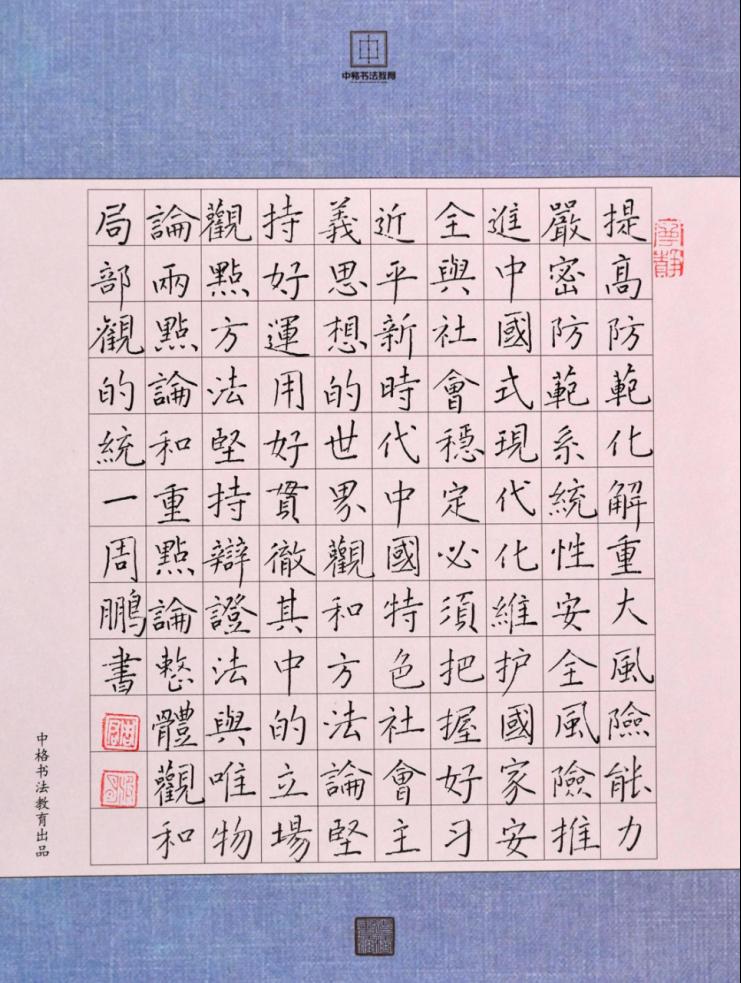 中格书法教育
寧靜
提高防範化解重大風險能力
嚴密防範系統性安全風險推
進中國式現代化維护國家安
全與社會穩定必須把握好习
近平新時代中國特色社會主
義思想的世界觀和方法論堅
持好運用好貫徹其中的立場
觀點方法堅持辯證法與唯物
論兩點論和重點論整體觀和
局部觀的統一周鵬書
中格书法教育出品